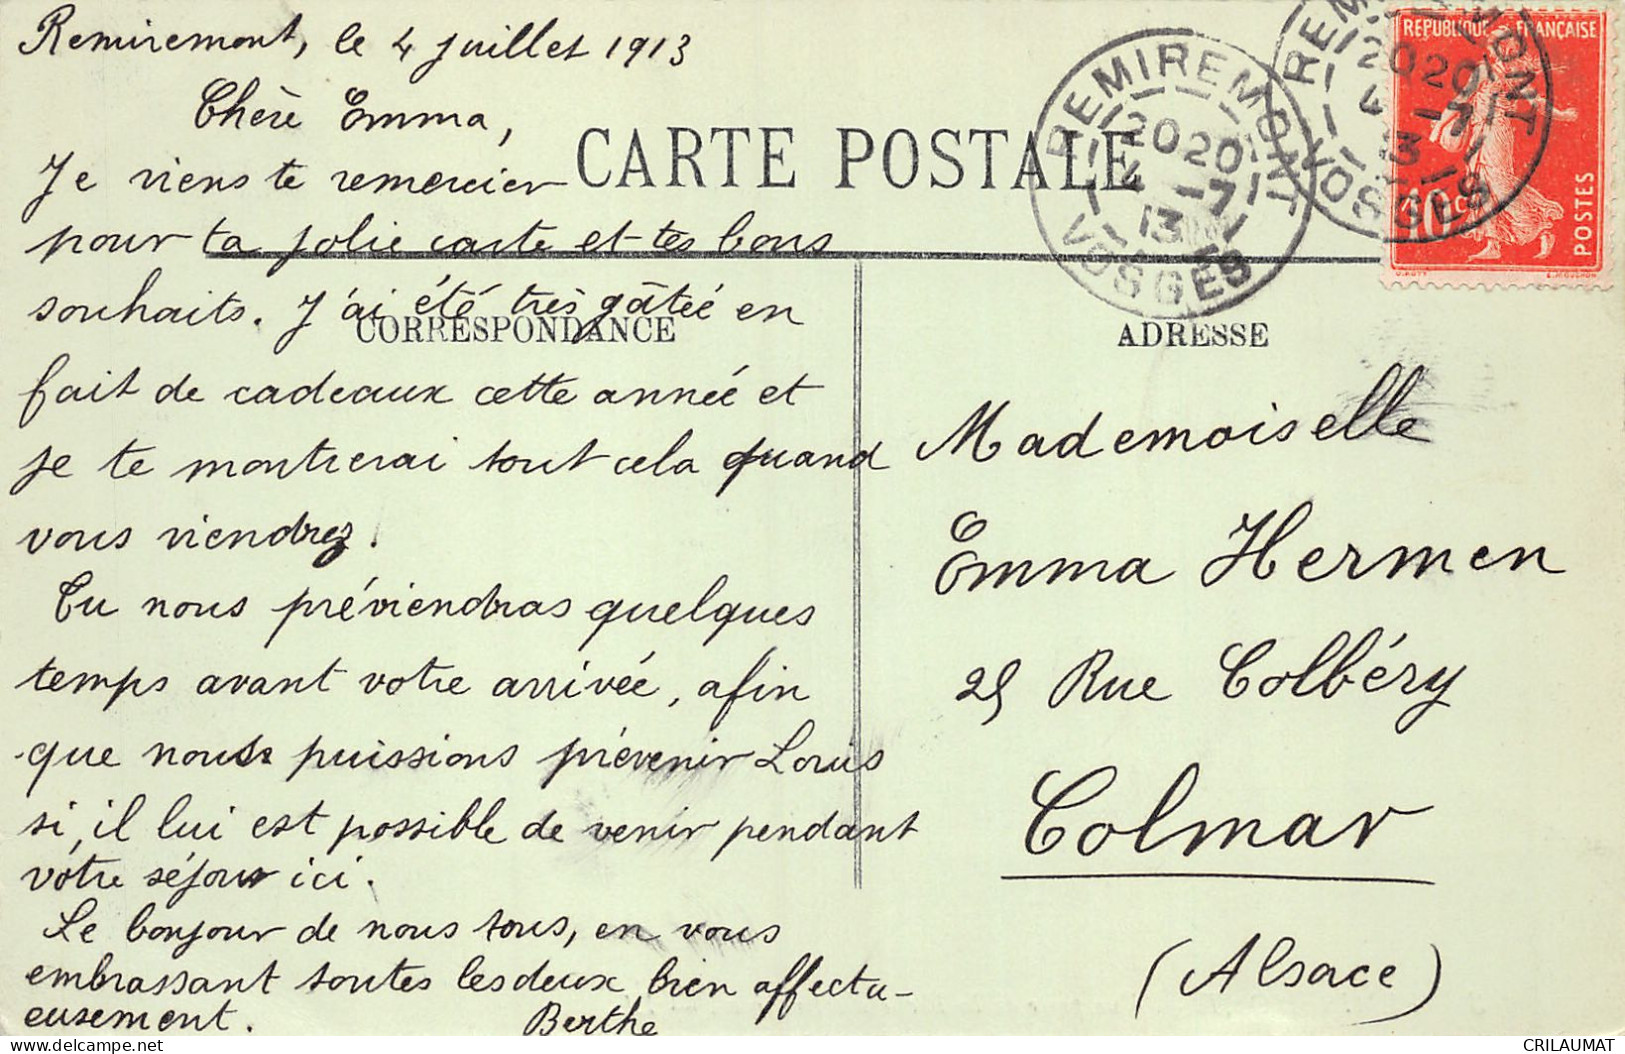 Remiremont, le 4 juillet 1913
Chère Emma,
CARTE POSTALE
Je viens te remercier
pour ta jolie carte et tes bons
souhaits. J'ai été très gâtée en
CORRESPONDANCE
fait de cadeaux cette année et
je te montrerai tout cela quand
vous viendrez.
Tu nous préviendras quelques
temps avant votre arrivée, afin
que nous puissions prévenir Louis
si, il lui est possible de venir pendant
votre séjour ici.
Le bonjour de nous tous, en vous
embrassant toutes les deux bien affectu-
eusement.
Berthe
REMIREMONT
20 20
4 -7
13
VOSGES
REMIREMONT
20 20
4 -7
13
VOSGES
REPUBLIQUE FRANÇAISE
10 c
POSTES
ADRESSE
Mademoiselle
Emma Hermen
25 Rue Colbéry
Colmar
(Alsace)
CRILAUMAT